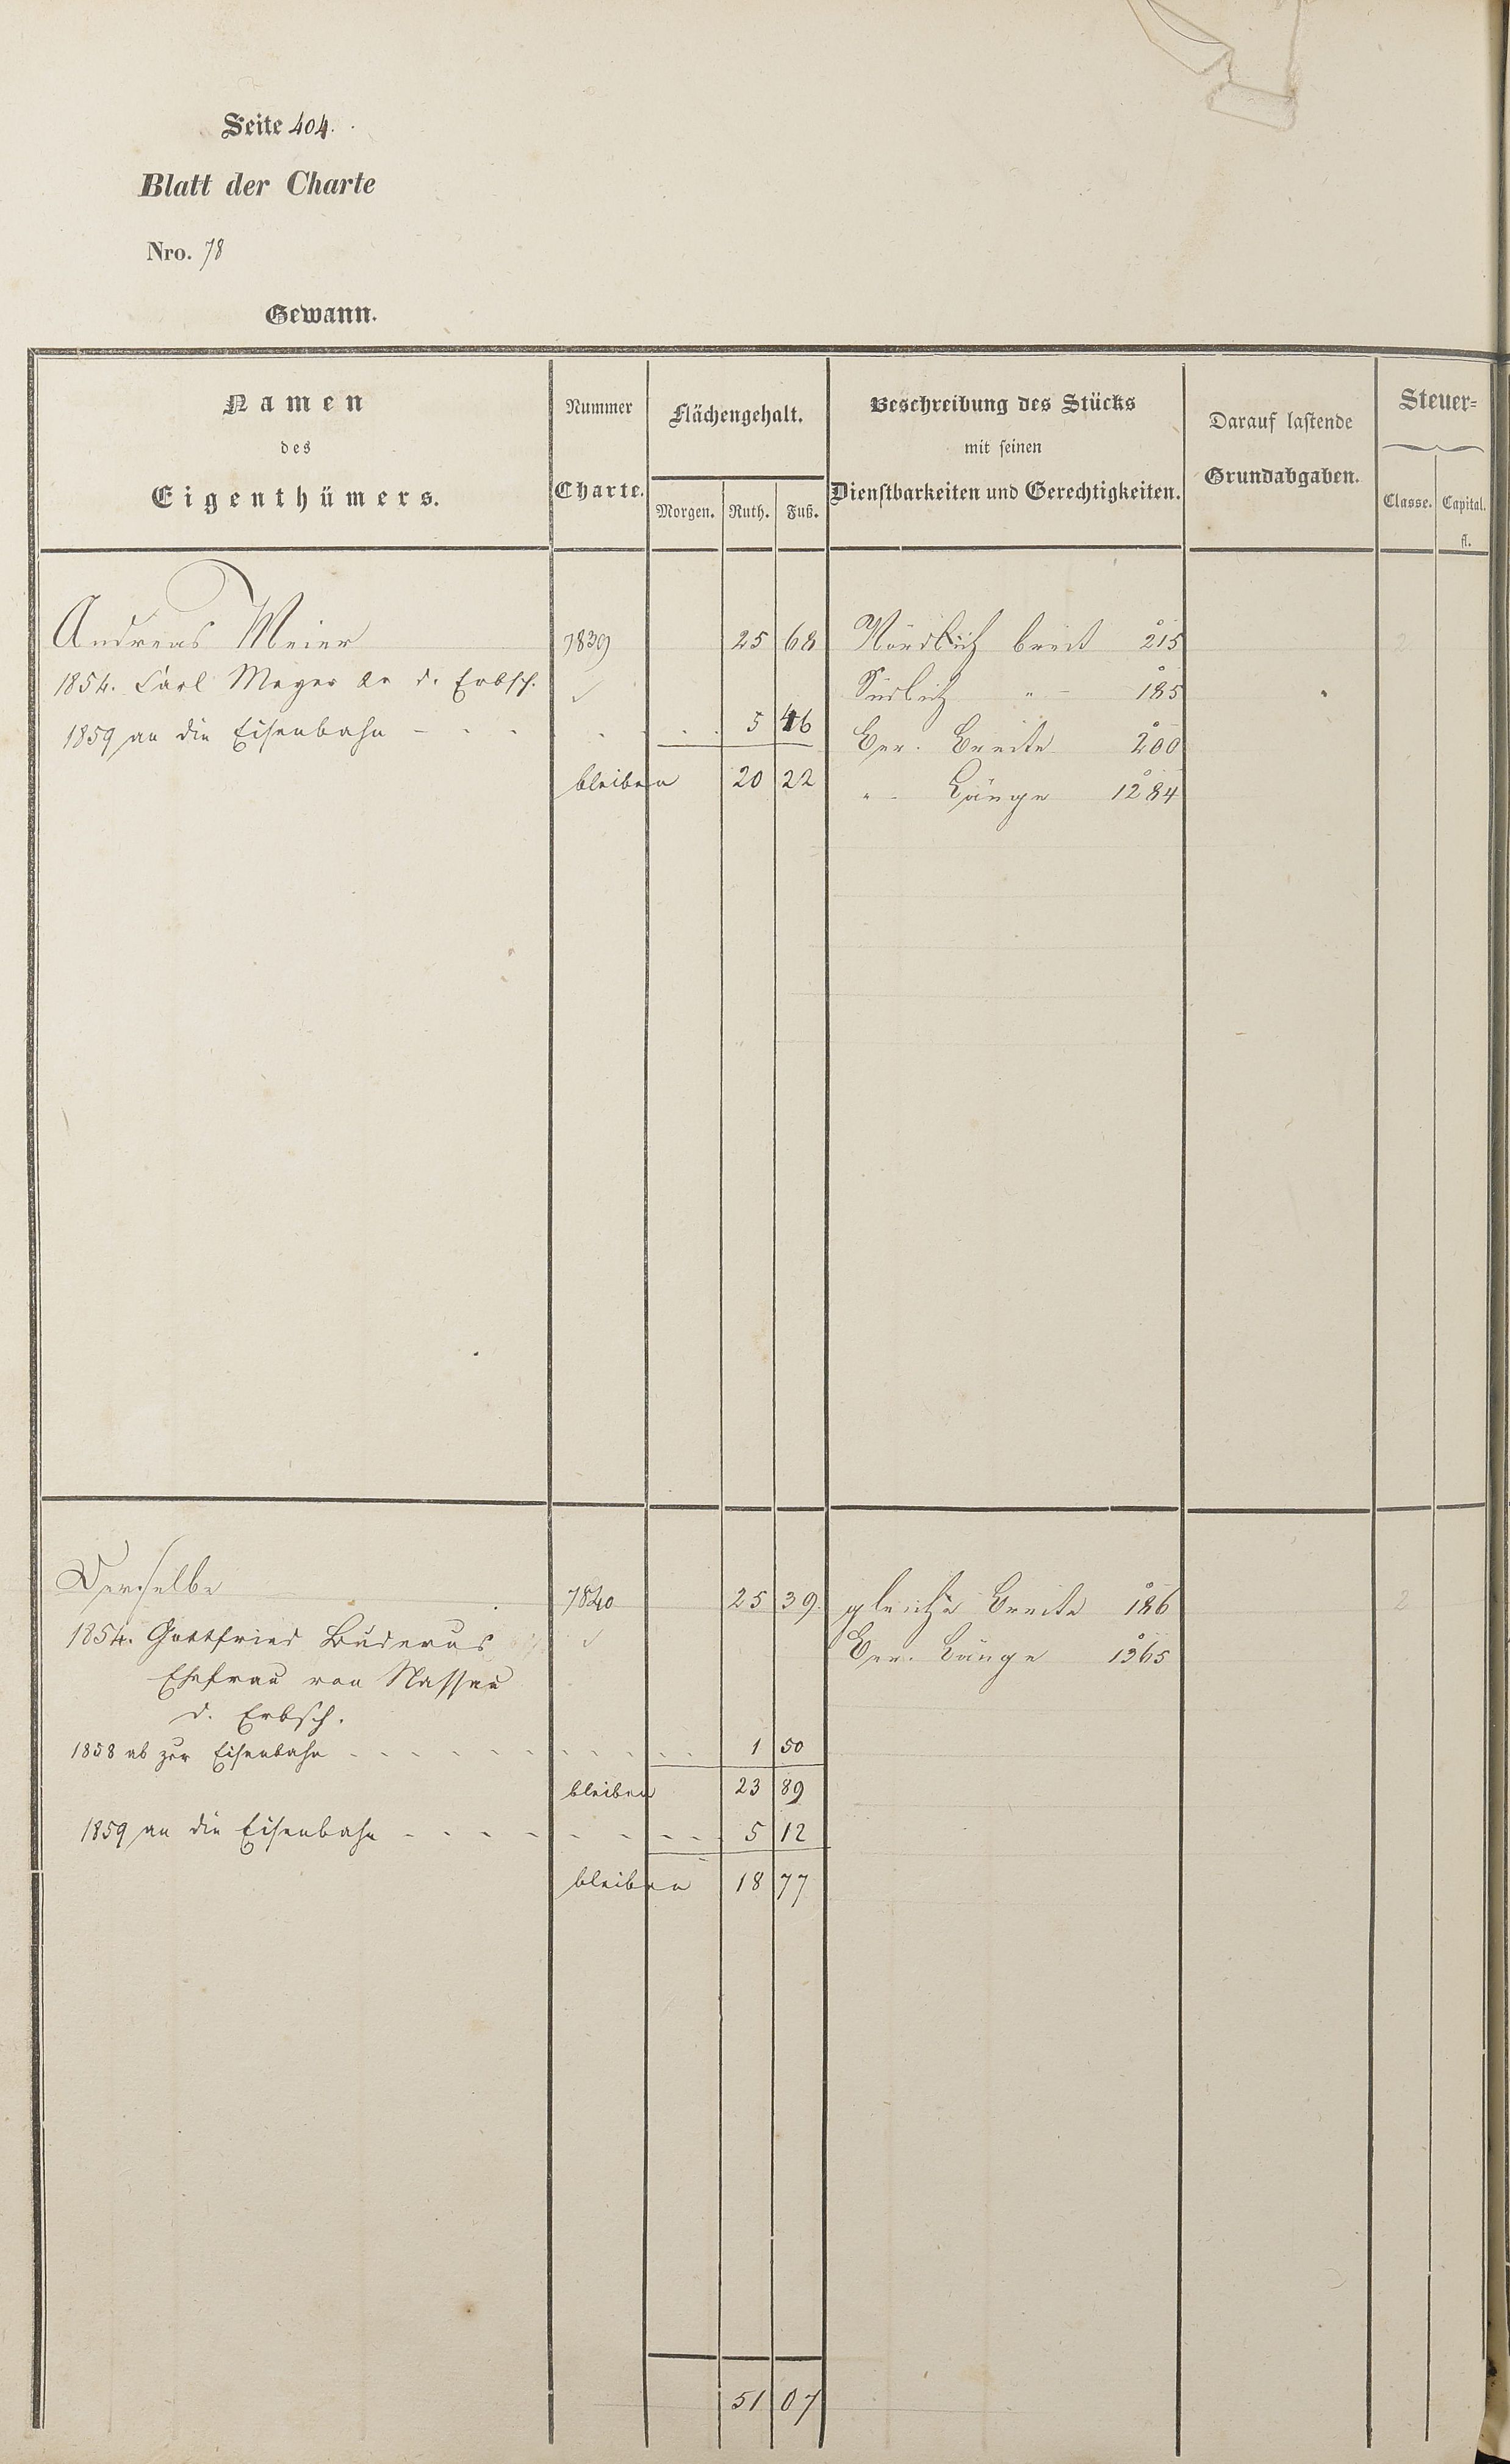 Seite 404.
Blatt der Charte
Nro. 78
Gewann.
Namen des Eigenthümers.
Nummer Charte.
Flächengehalt.
Morgen. Ruth. Fuß.
Beschreibung des Stücks mit seinen Dienstbarkeiten und Gerechtigkeiten.
Darauf lastende Grundabgaben.
Steuer=
Classe. Capital.
fl.
Andreas Meier 7839 25 68 Nördlich breit 215
1854. Carl Meyer d. Erbsch. Südlich " 185
1859 an die Eisenbahn 5 46 Ber. Breite 200
bleiben 20 22 " Länge 1284
Derselbe 7840 25 39. gleiche Breite 186 2
1854. Gottfried Buderus Ber. Länge 1365
Ehefrau von Nassau
d. Erbsch.
1858 ab zur Eisenbahn 1 50
bleiben 23 89
1859 an die Eisenbahn 5 12
bleiben 18 77
51 07